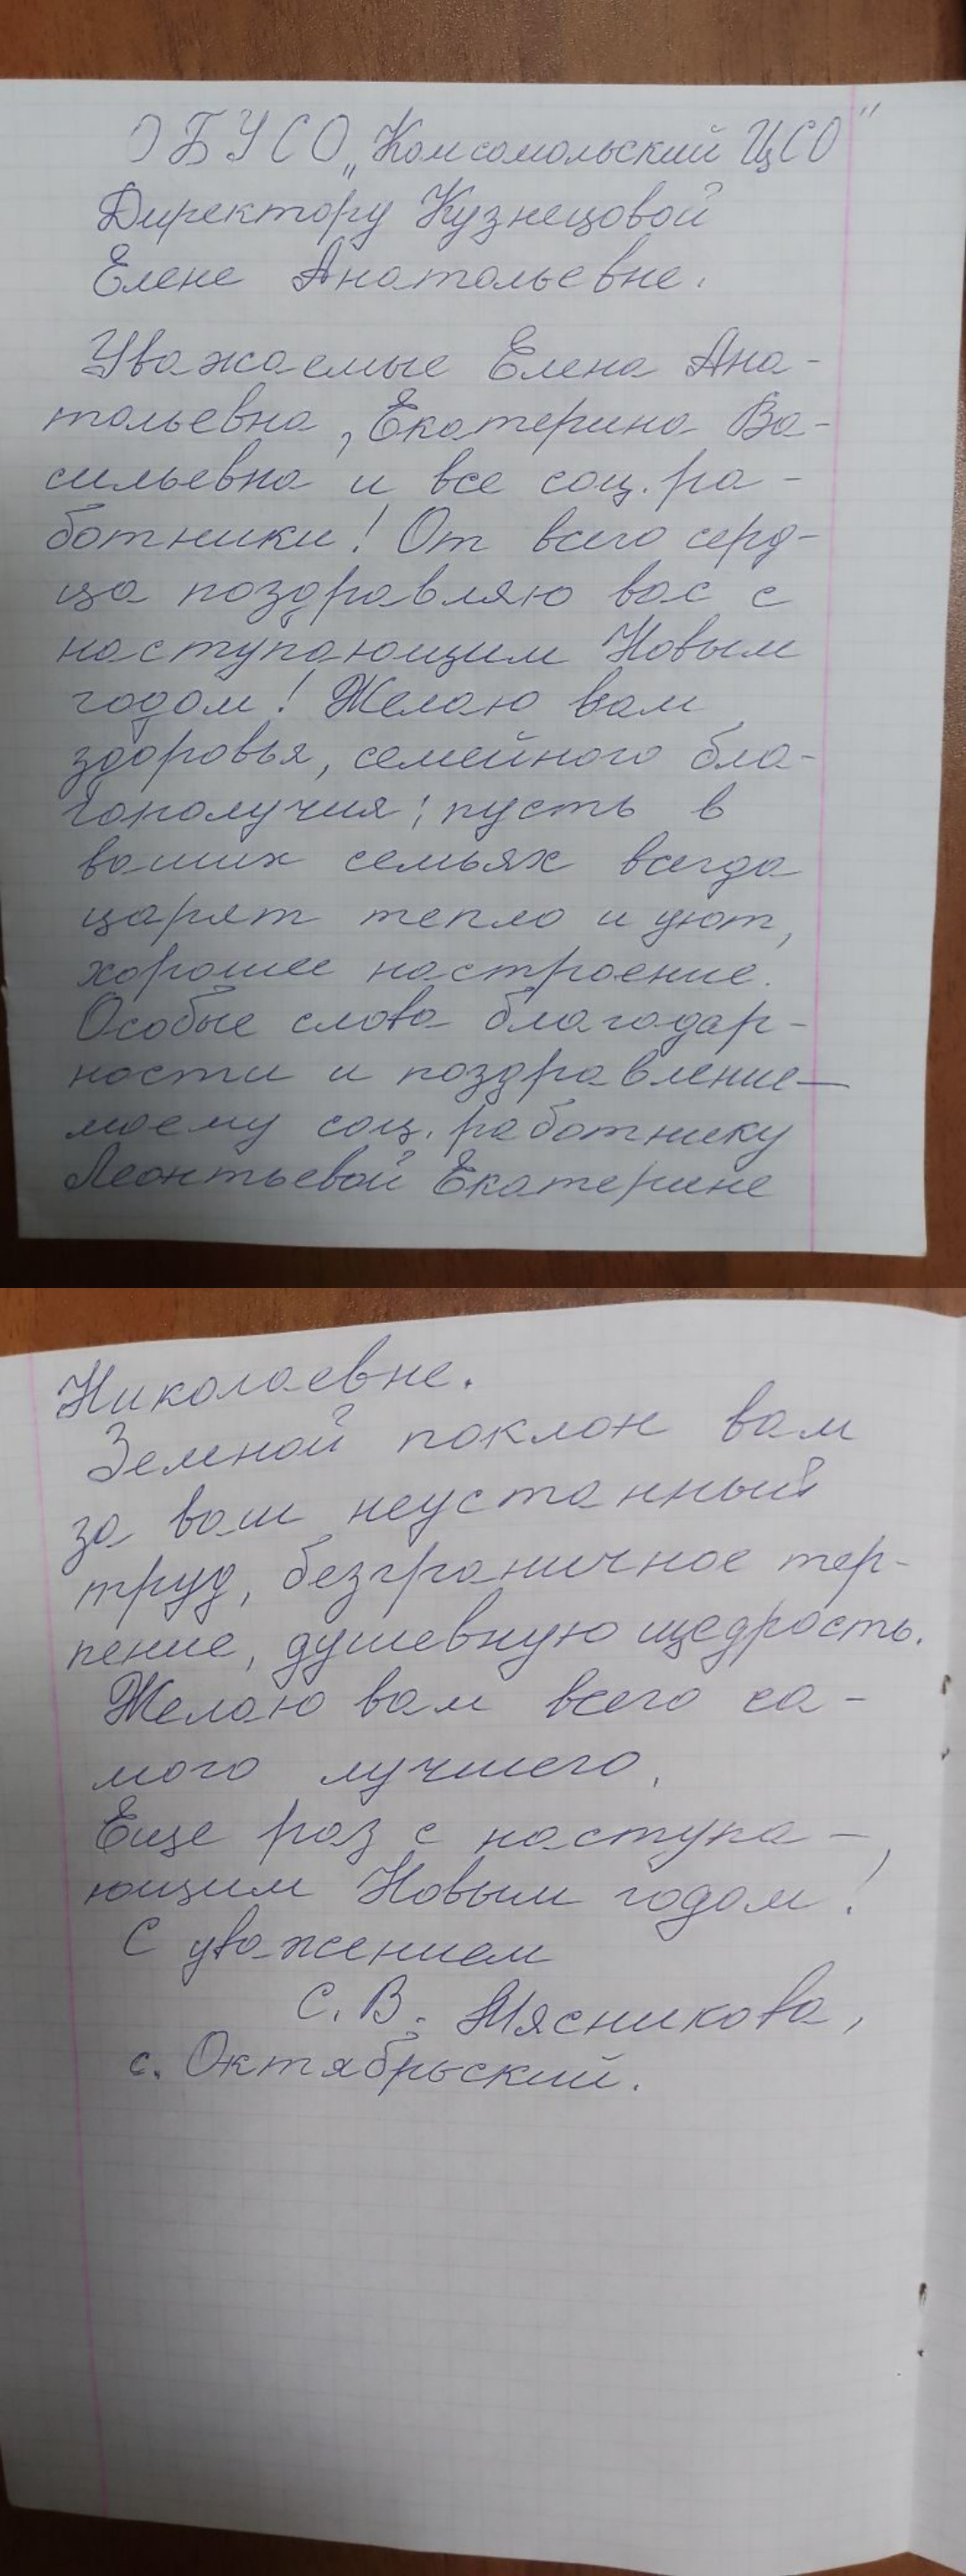 ОБУСО „Комсомольский ЦСО"
Директору Кузнецовой
Елене Анатольевне.
Уважаемые Елена Ана-
тольевна, Екатерина Ва-
сильевна и все соц. ра-
ботники! От всего серд-
ца поздравляю вас с
наступающим Новым
годом! Желаю вам
здоровья, семейного бла-
гополучия; пусть в
ваших семьях всегда
царят тепло и уют,
хорошее настроение.
Особые слова благодар-
ности и поздравление—
моему соц. работнику
Леонтьевой Екатерине
Николаевне.
Земной поклон вам
за ваш неустанный
труд, безграничное тер-
пение, душевную щедрость.
Желаю вам всего са-
мого лучшего.
Еще раз с наступа-
ющим Новым годом!
С уважением
С. В. Мясникова,
с. Октябрьский.